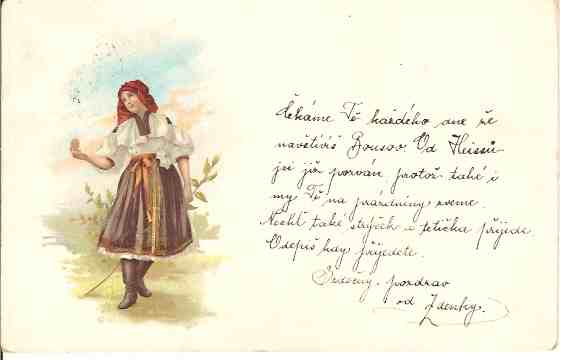 Čekáme Tě každého dne že
navštívíš Bousov. Od Heissů
jsi již pozván protož také i
my Tě na prázdniny zveme.
Nechť také strýček a tetička přijede.
Odepiš kdy přijedete.
Srdečný pozdrav
od Zdenky.